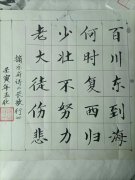 百川东到海
何时复西归
少壮不努力
老大徒伤悲
乐府诗《长歌行》
壬寅年